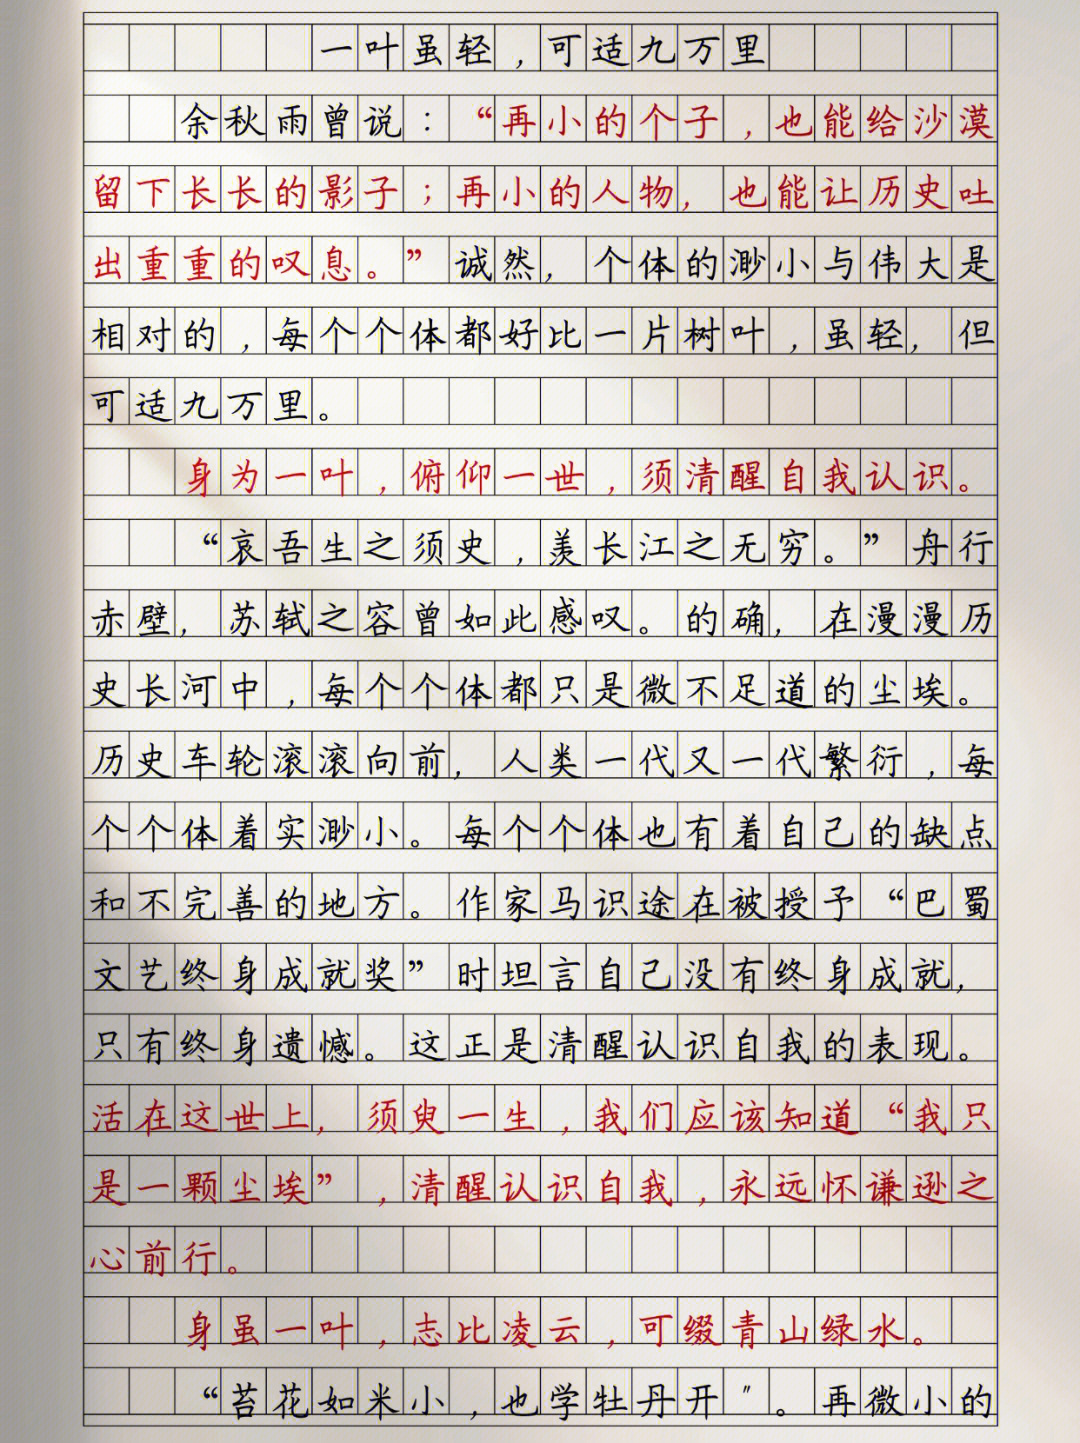 一叶虽轻，可适九万里
余秋雨曾说：“再小的个子，也能给沙漠
留下长长的影子；再小的人物，也能让历史吐
出重重的叹息。”诚然，个体的渺小与伟大是
相对的，每个个体都好比一片树叶，虽轻，但
可适九万里。
身为一叶，俯仰一世，须清醒自我认识。
“哀吾生之须史，羡长江之无穷。”舟行
赤壁，苏轼之容曾如此感叹。的确，在漫漫历
史长河中，每个个体都只是微不足道的尘埃。
历史车轮滚滚向前，人类一代又一代繁衍，每
个个体着实渺小。每个个体也有着自己的缺点
和不完善的地方。作家马识途在被授予“巴蜀
文艺终身成就奖”时坦言自己没有终身成就，
只有终身遗憾。这正是清醒认识自我的表现。
活在这世上，须臾一生，我们应该知道“我只
是一颗尘埃”，清醒认识自我，永远怀谦逊之
心前行。
身虽一叶，志比凌云，可缀青山绿水。
“苔花如米小，也学牡丹开″。再微小的